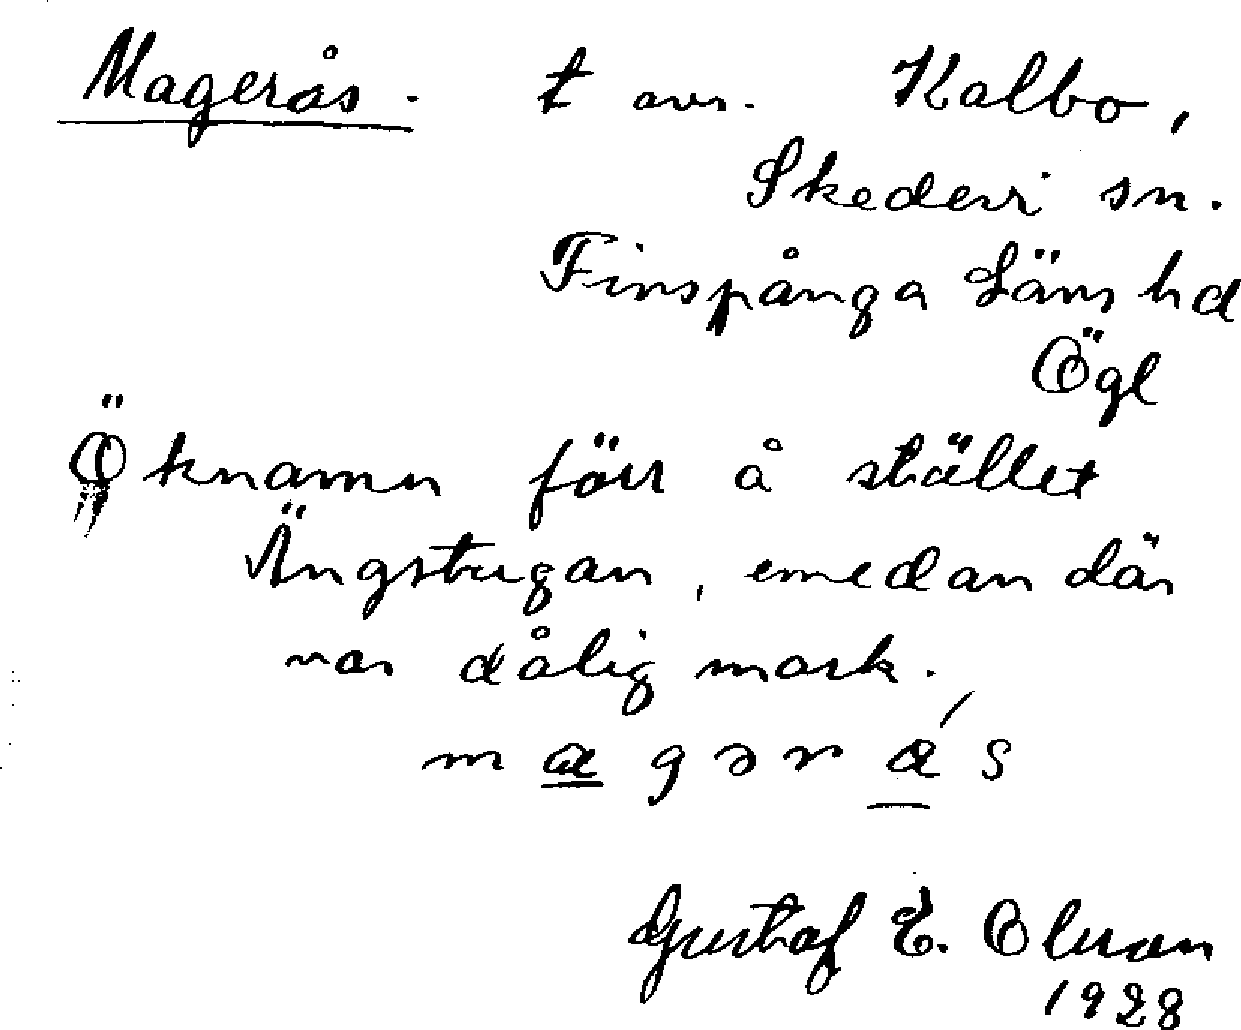 Magerås. t avs. Kalbo,
Skedevi sn.
Finspånga Läns hd
Ögl
Öknamn förr å stället
Ängstugan, emedan där
var dålig mark.
m a g ə r å s
Gustaf E. Olsson
1928